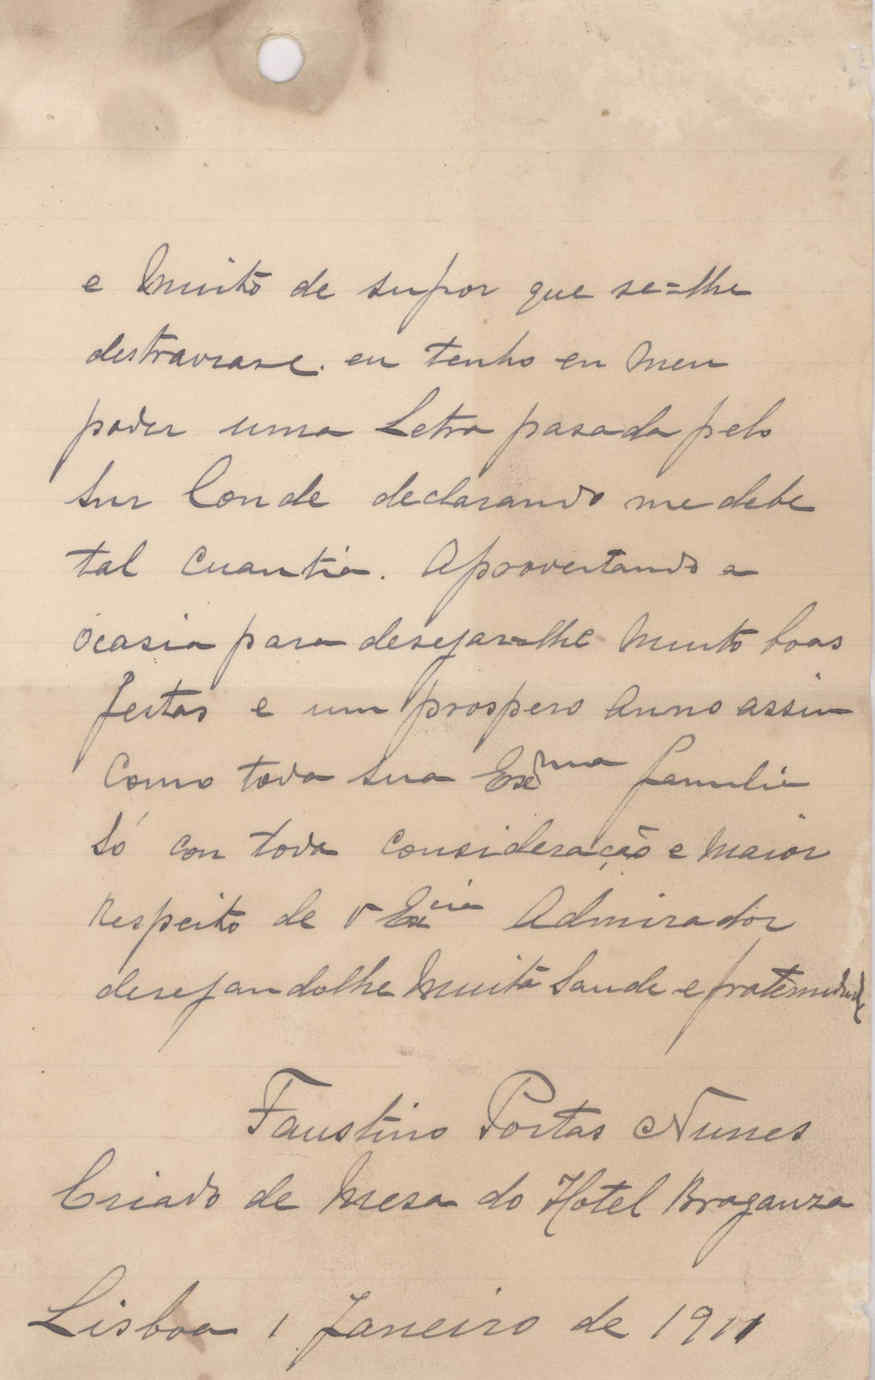 e Muito de supor que se=lhe
destraviase. eu tenho en Meu
poder uma Letra pasada pelo
Snr Conde declarando me debe
tal cuantia. Aproveitando a
ocasia para desejar=lhe Muito boas
festas e um prospero Anno assin
Como toda sua Exma familia
Só con toda consideração e Maior
Respeito de V Excia Admirador
desejandolhe Muita Saude e fraternidade
Faustino Portas Nunes
Criado de Mesa do Hotel Braganza
Lisboa 1 Janeiro de 1911